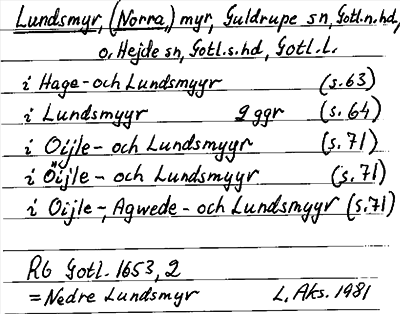 Lundsmyr, (Norra,) myr, Guldrupe sn, Gotl.n.hd,
o. Hejde sn, Gotl.s.hd, Gotl.L.
i Hage- och Lundsmyyr (s.63)
i Lundsmyyr 2 ggr (s.64)
i Oijle- och Lundsmyyr (s.71)
i Öijle- och Lundsmyyr (s.71)
i Oijle-, Agwede- och Lundsmyyr (s.71)
RG Gotl. 1653, 2
= Nedre Lundsmyr L. Aks. 1981